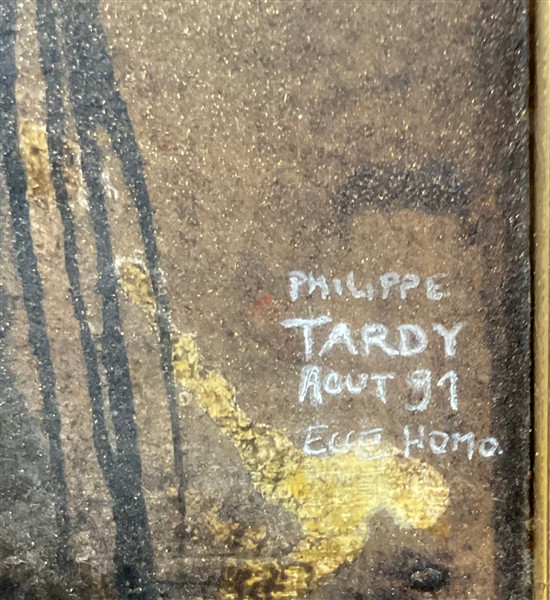 PHILIPPE
TARDY
AOUT 91
ECCE HOMO.